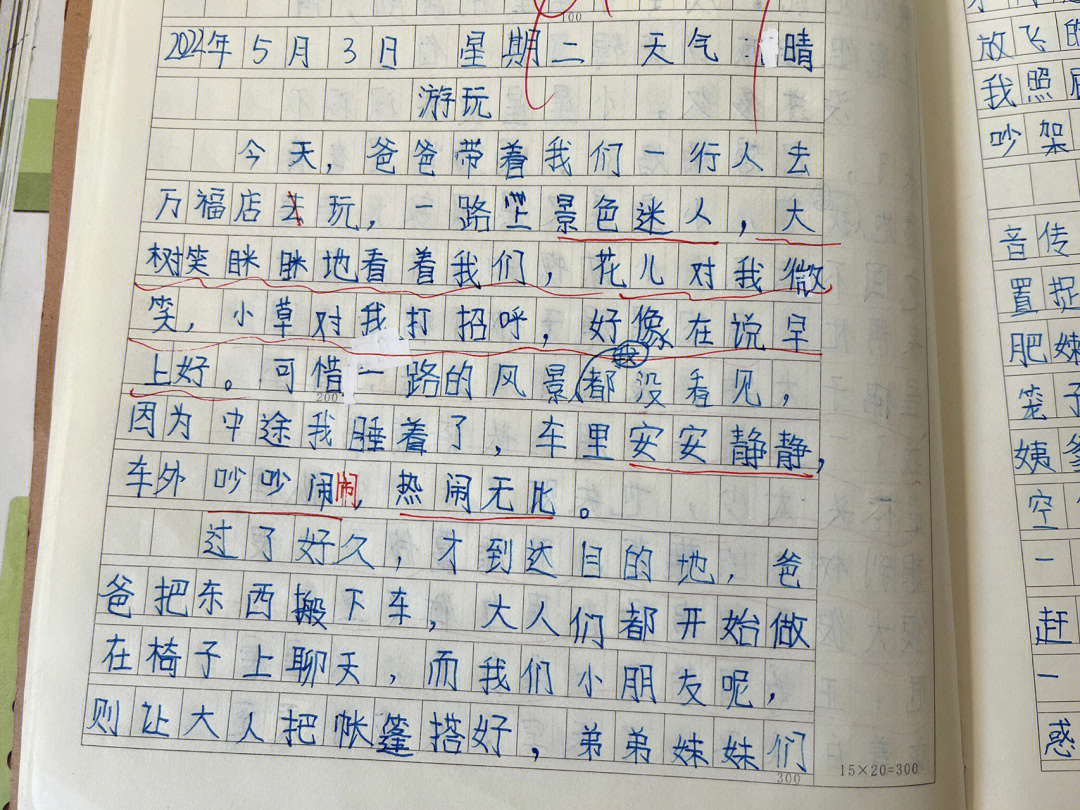 100
2024年5月3日 星期二 天气 晴
游玩
今天，爸爸带着我们一行人去
万福店去玩，一路上景色迷人，大
树笑眯眯地看着我们，花儿对我微
笑，小草对我打招呼，好像在说早
上好。可惜一路的风景我都没看见，
200
因为中途我睡着了，车里安安静静，
车外吵吵闹闹，热闹无比。
过了好久，才到达目的地，爸
爸把东西搬下车，大人们都开始做
在椅子上聊天，而我们小朋友呢，
则让大人把帐篷搭好，弟弟妹妹们
300
15×20=300
放飞的
我照顾
吵架
音传
置捉
肥嫩
笼子
姨爹
空
一
赶
一
惑